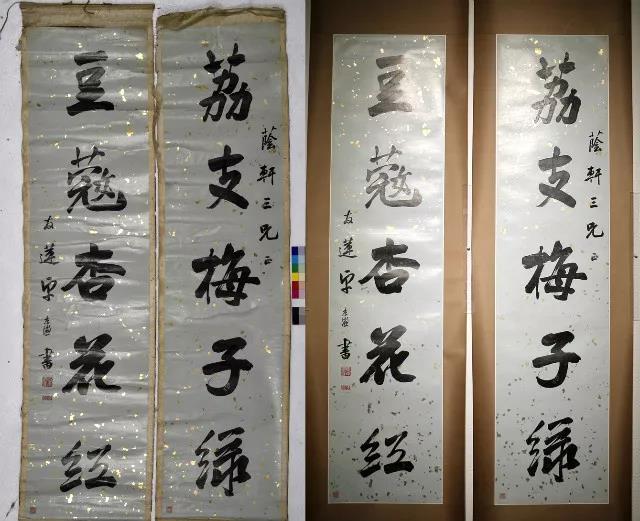 荔支梅子綠
蔭軒三兄正
豆蔻杏花紅
友蓮書
荔支梅子綠
蔭軒三兄正
豆蔻杏花紅
友蓮書